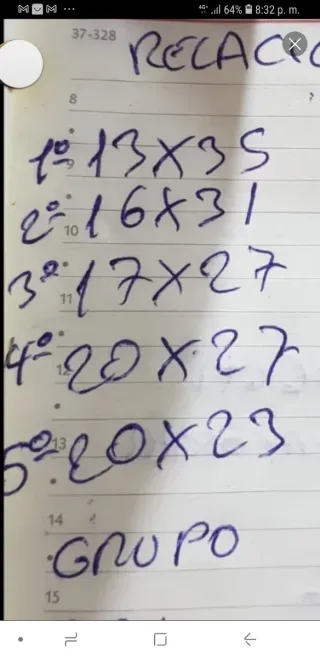 64% 8:32 p. m.
37-328
RELACIO
8
9
1º 13X35
2º 16X31
10
3º 17X27
11
4º 20X27
12
5º 20X23
13
14
GRUPO
15